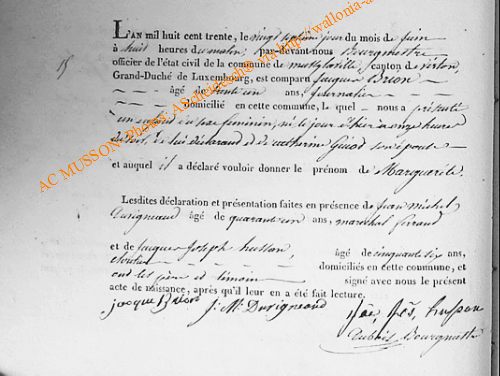 L'AN mil huit cent trente, le vingt septième jour du mois de juin
à huit heures du matin; par-devant-nous Bourgmestre,
officier de l'état civil de la commune de, canton de virton,
Grand-Duché de Luxembourg, est comparu jacques
15
âgé de ans, journalier
domicilié en cette commune, Lequel nous a présenté
un enfant du sexe féminin, né le jour d'hier à onze heures
du soir, de lui déclarant et de catherine son épouse
et auquel il a déclaré vouloir donner le prénom de Marguerite.
Lesdites déclaration et présentation faites en présence de jean michel
Durigneaud âgé de quarante un ans, maréchal ferrand
et de jacques joseph husson, âgé de cinquante six ans,
cloutier domiciliés en cette commune, et
ont les père et témoin signé avec nous le présent
acte de naissance, après qu'il leur en a été fait lecture.
J. M. Durigneaud husson
Bourgmestre
AC MUSSON Photos AS
http://wallonia-a